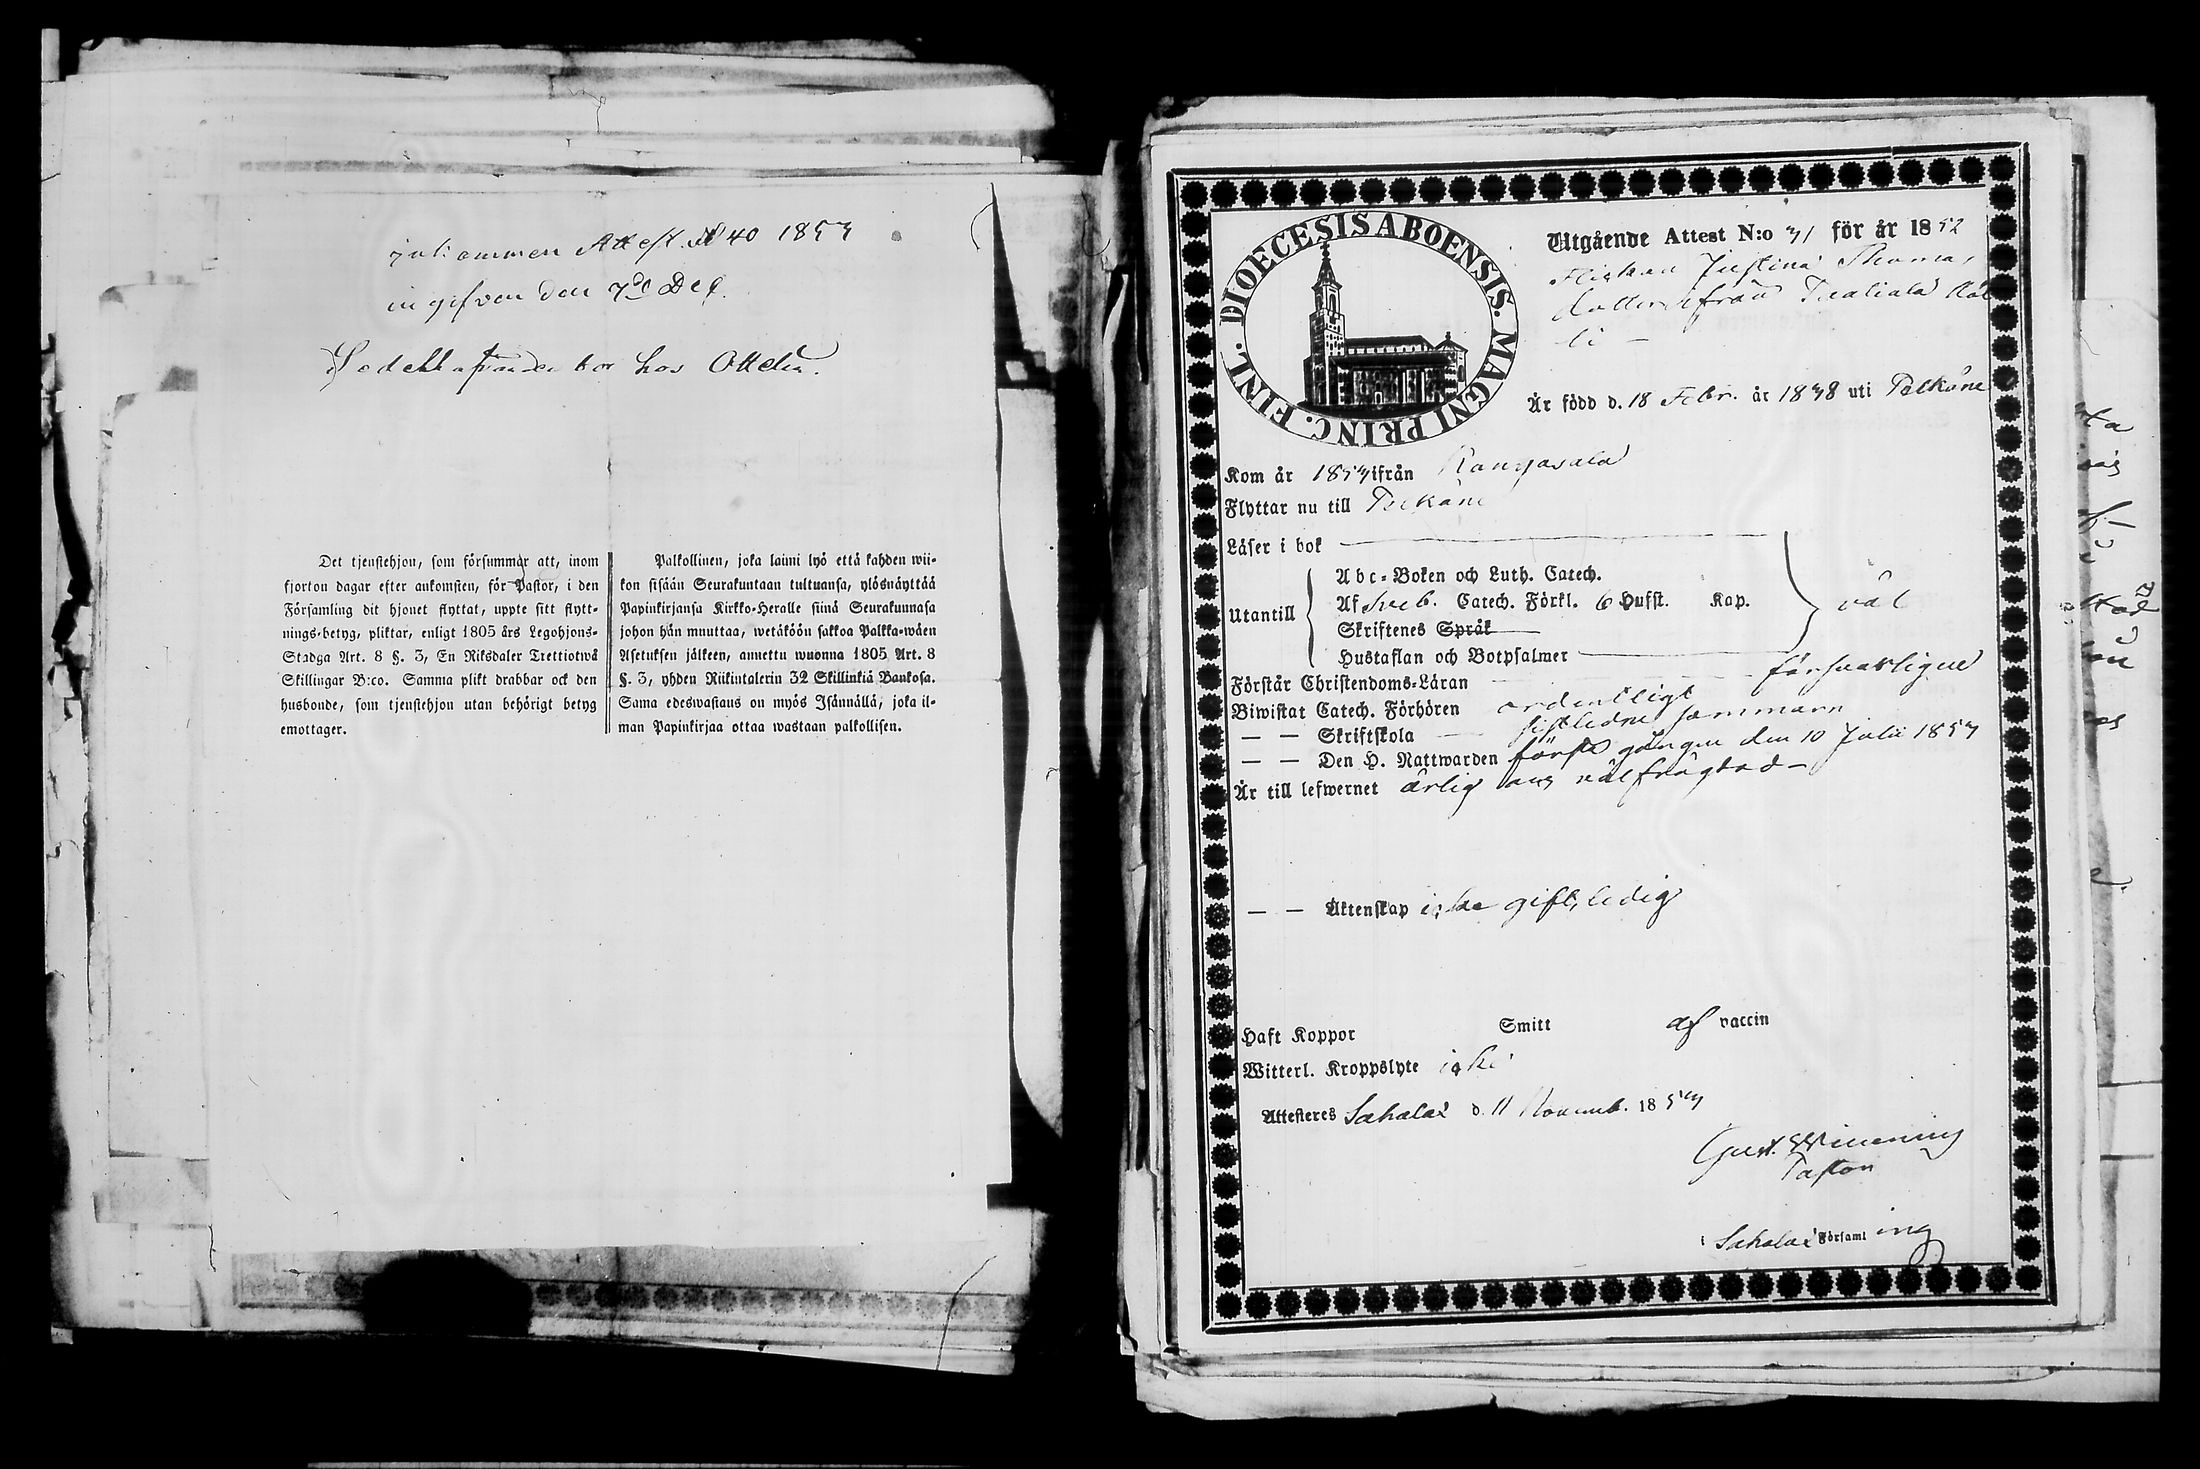 inkommen Attest N 40 1853
ingifven den 7d Dec.
bor hos Ottela.
Det tjenstehjon, som försummar att, inom
fjorton dagar efter ankomsten, för Pastor, i den
Församling dit hjonet flyttat, uppte sitt flytt-
nings-betyg, pliktar, enligt 1805 års Legohjons-
Stadga Art. 8 §. 3, En Riksdaler Trettiotwå
Skillingar B:co. Samma plikt drabbar ock den
husbonde, som tjenstehjon utan behörigt betyg
emottager.
Palkollinen, joka laimi lyö että kahden wii-
kon sisään Seurakuntaan tultuansa, ylösnäyttää
Papinkirjansa Kirkko-Heralle siinä Seurakunnasa
johon hän muuttaa, wetäköön sakkoa Palkka-wäen
Asetuksen jälkeen, annettu wuonna 1805 Art. 8
§. 3, yhden Riikintalerin 32 Skillinkiä Bankosa.
Sama edeswastaus on myös Isännällä, joka il-
man Papinkirjaa ottaa wastaan palkollisen.
DIOECESIS ABOENSIS. MAGNI PRINC. FINL.
Utgående Attest N:o 31 för år 1852
Flickan Justina Thomas
dotter ifrån
Är född d. 18 Febr. år 1838 uti Pelkäne
Kom år 1853 ifrån Kangasala
Flyttar nu till Pelkäne
Läser i bok
Utantill
Abc-Boken och Luth. Catech.
Af Sveb. Catech. Förkl. 6 Hufst. Kap.
Skriftenes Språk
Hustaflan och Botpsalmer
väl
Förstår Christendoms-Läran försvarligen
Biwistat Catech. Förhören ordentligt
— — Skriftskola sistledne sommaren
— — Den H. Nattwarden första gången den 10 Julii 1853
Är till lefwernet ärlig och välfrägdad
— — Äktenskap icke gift, ledig
Haft Koppor Smitt af vaccin
Witterl. Kroppslyte icke
Attesteres Sahalax d. 11 Novemb. 1853
Gust. Winening
Pastor
i Sahalax Församling